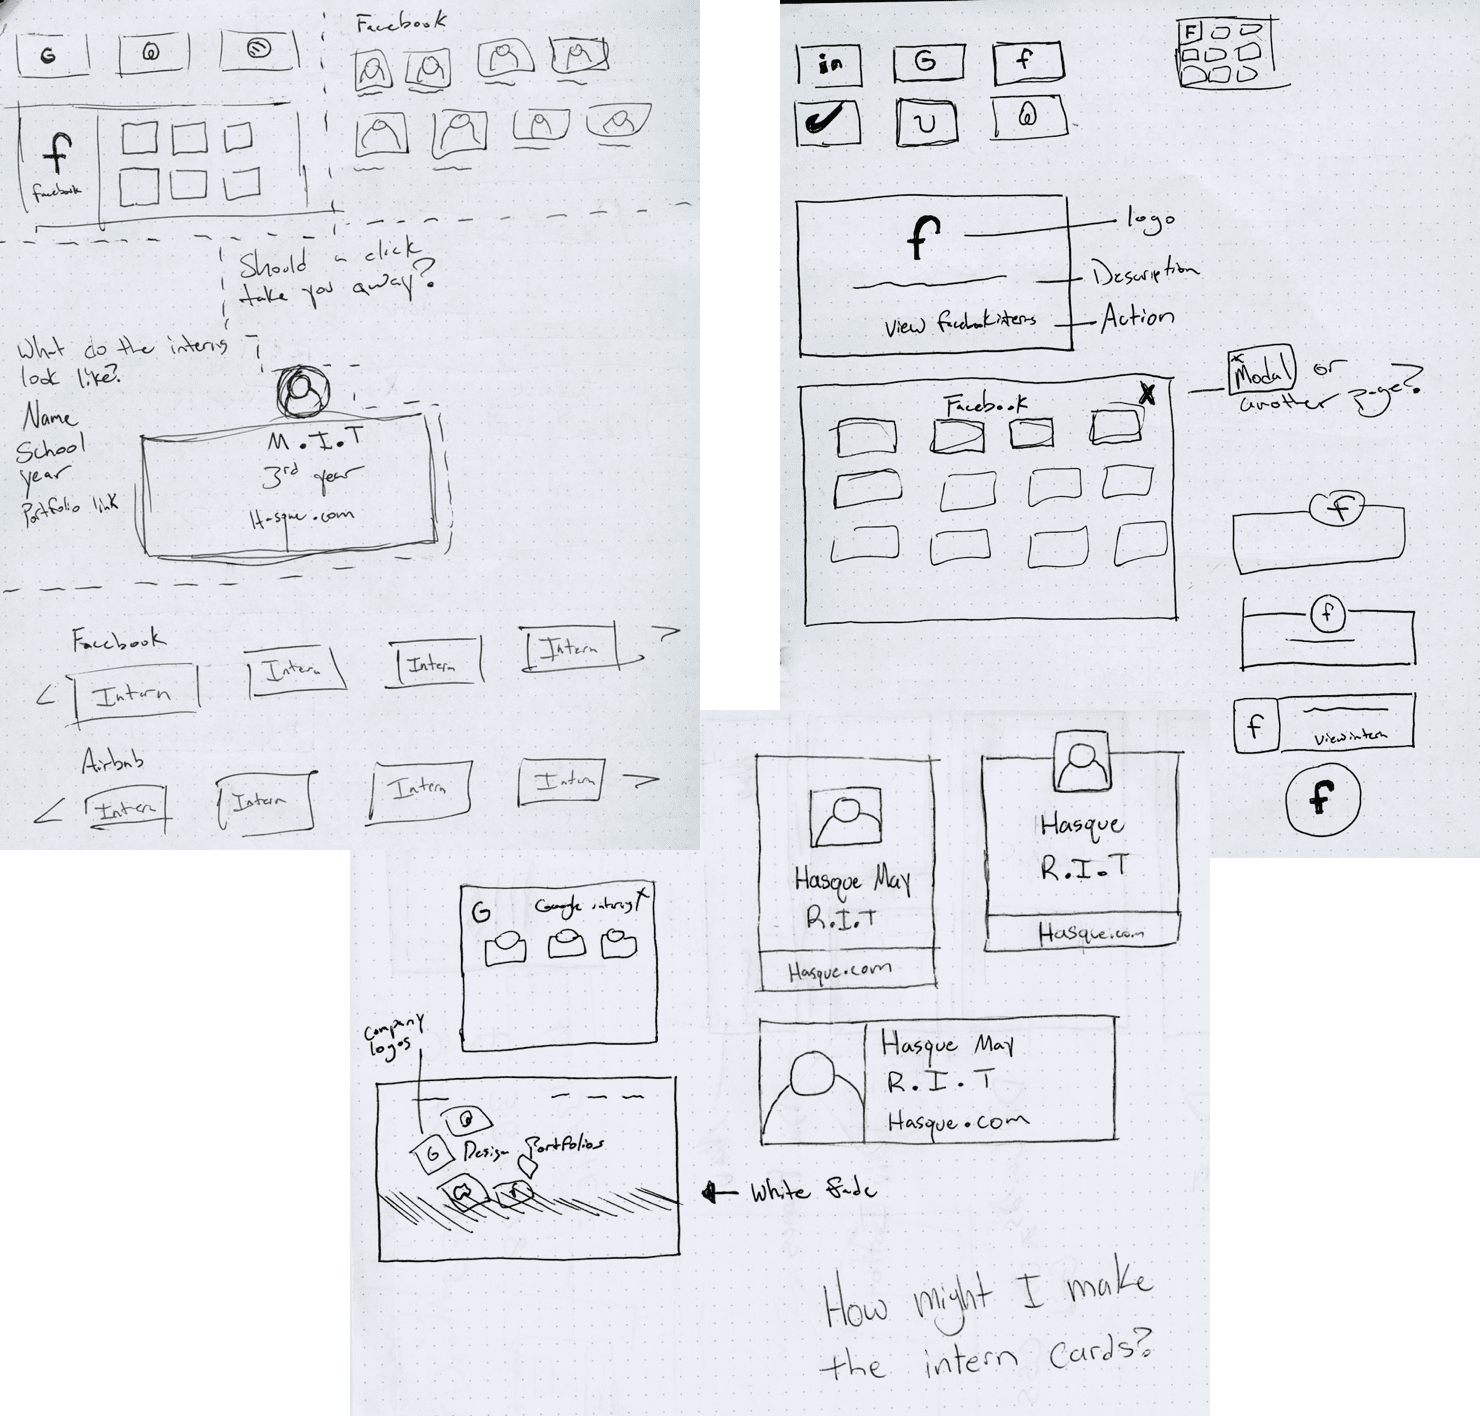 G
f
facebook
Facebook
Should a click
take you away?
What do the interns
look like?
Name
School
year
Portfolio link
M.I.T
3rd year
Hasque.com
Facebook
< Intern Intern Intern Intern >
Airbnb
< Intern Intern Intern Intern >
in G f
U
F
f
logo
Description
View facebook interns
Action
Facebook X
x
Modal or
another page?
f
f
f
View intern
f
G Google interns X
Company
logos
G Design Portfolios
White fade
Hasque May
R.I.T
Hasque.com
Hasque
R.I.T
Hasque.com
Hasque May
R.I.T
Hasque.com
How might I make
the intern cards?